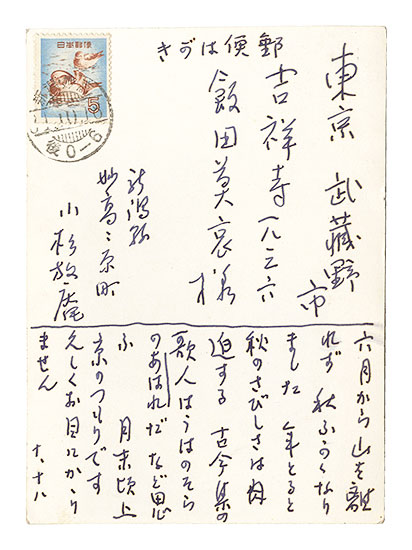 郵便はがき
日本郵便
5
後0-6
東京 武蔵野市
吉祥寺一八三六
飯田莫哀様
新潟縣
妙高々原町
小杉放庵
六月から山を離
れず 秋ふかくなり
ました 年とると
秋のさびしさは肉
迫する 古今集の
歌人はうはのそら
のあはれだなど思
ふ 月末頃上
京のつもりです
久しくお目にかかり
ません 十、十八